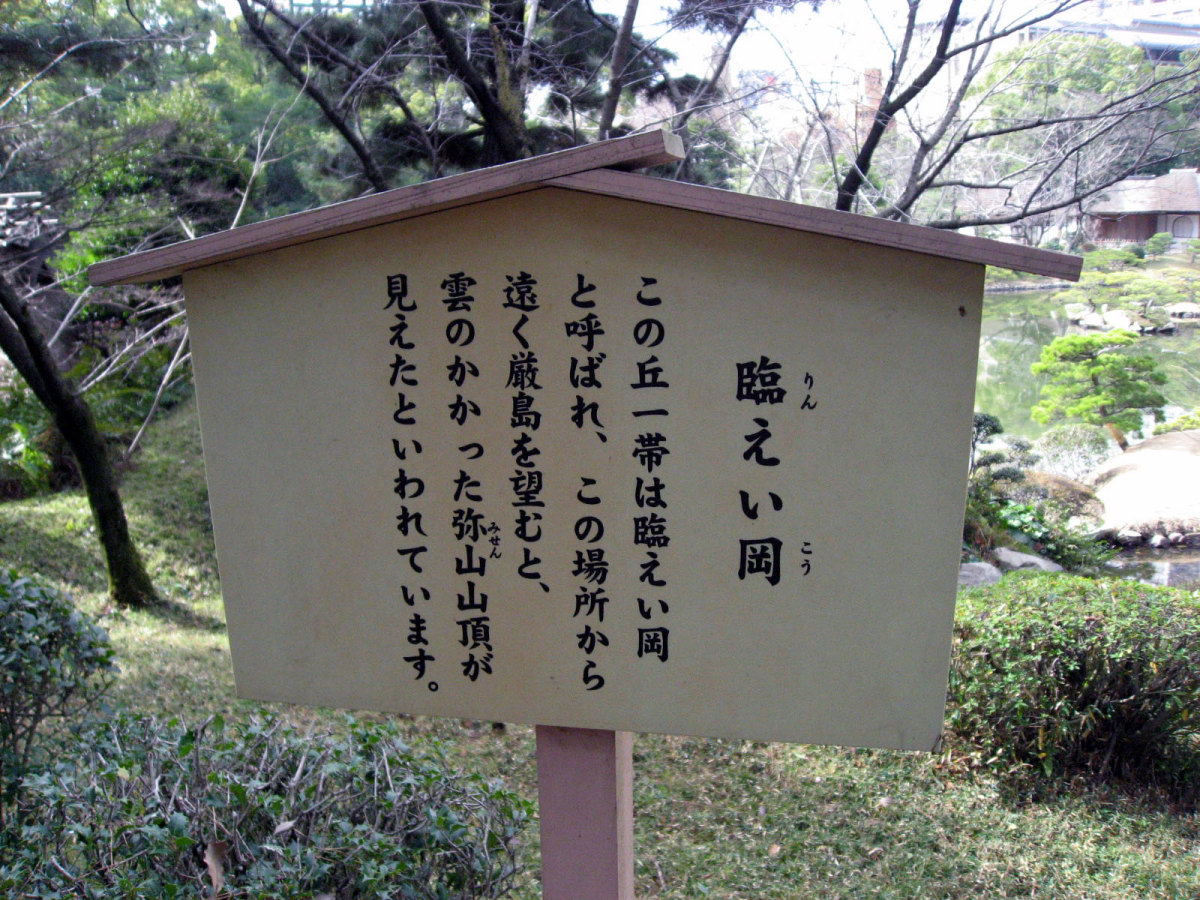 臨えい岡
りん
こう
この丘一帯は臨えい岡
と呼ばれ、この場所から
遠く厳島を望むと、
雲のかかった弥山山頂が
みせん
見えたといわれています。